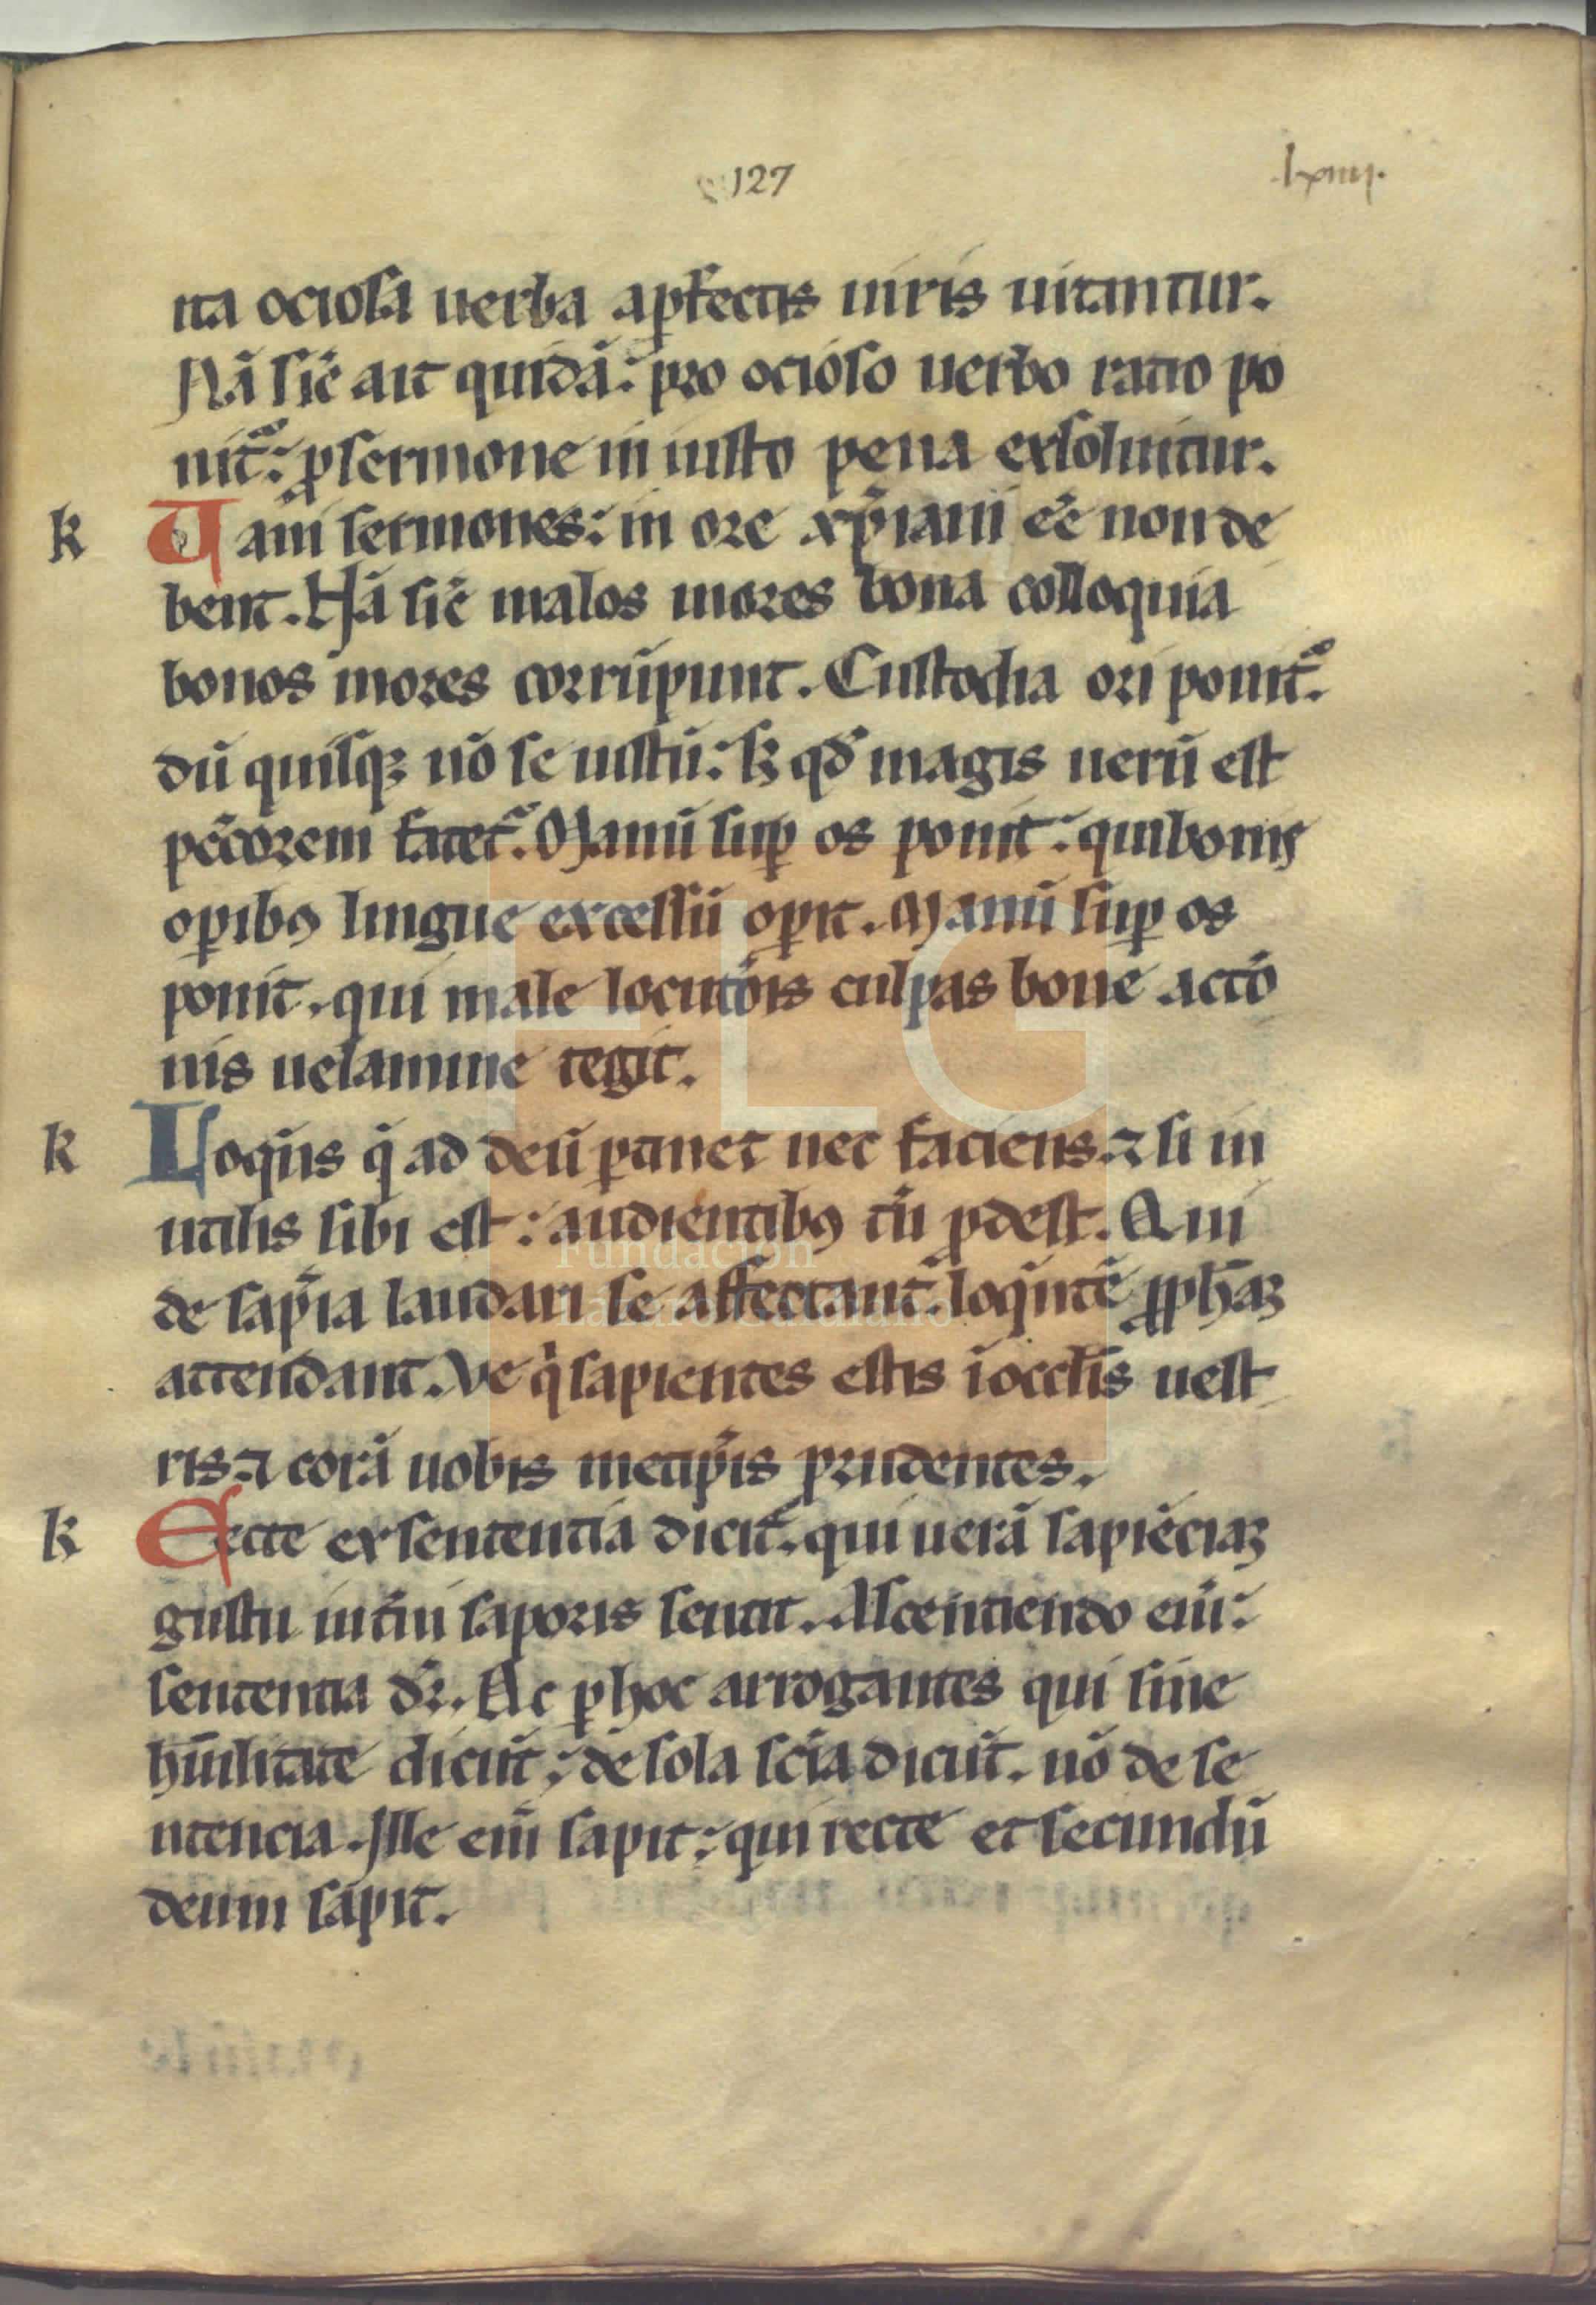 127 .lxiiij.
ita ociosa uerba a ꝑfectis uiris uitantur.
Nā sic̄ ait quidā: pro ocioso uerbo ratio po
nit̄: ꝓ sermone in iusto pena exsoluitur.
k Uani sermones: in ore xp̄iani eē non de
bent. Nā sic̄ malos mores bona colloquia
bonos mores corrūpunt. Custodia ori ponit̄.
dū quisqꝫ nō se iustū: sꝫ qđ magis uerū est
pec̄corem fatet̄. Manū suꝑ os ponit: qui bonis
oꝑibꝯ lingue excessū oꝑit. Manū suꝑ os
ponit. qui male locutōis culpas bone actō
nis uelamine tegit.
k Loqn̄s q̄ ad deū ꝑtinet nec faciens. ⁊ si in
utilis sibi est: audientibꝯ tn̄ ꝓdest. Qui
de sap̄ia laudari se affectant. loqn̄tē ꝓph̄aꝫ
attendant. Ve qͥ sapientes estis ī occl̄is uest
ris. ⁊ corā uobis metip̄is prudentes.
k Recte ex sententia dicit̄. qui uerā sapiēciaꝫ
gustu int̄ni saporis sentit. A scentiendo eni̅:
sententia dr̄. Ac ꝑ hoc arrogantes qui sine
hūilitate dicūt: de sola scīa dicūt. nō de se
ntencia. Ille eni̅ sapit: qui recte et secundū
deum sapit.
FLG
Fundación
Lázaro Galdiano